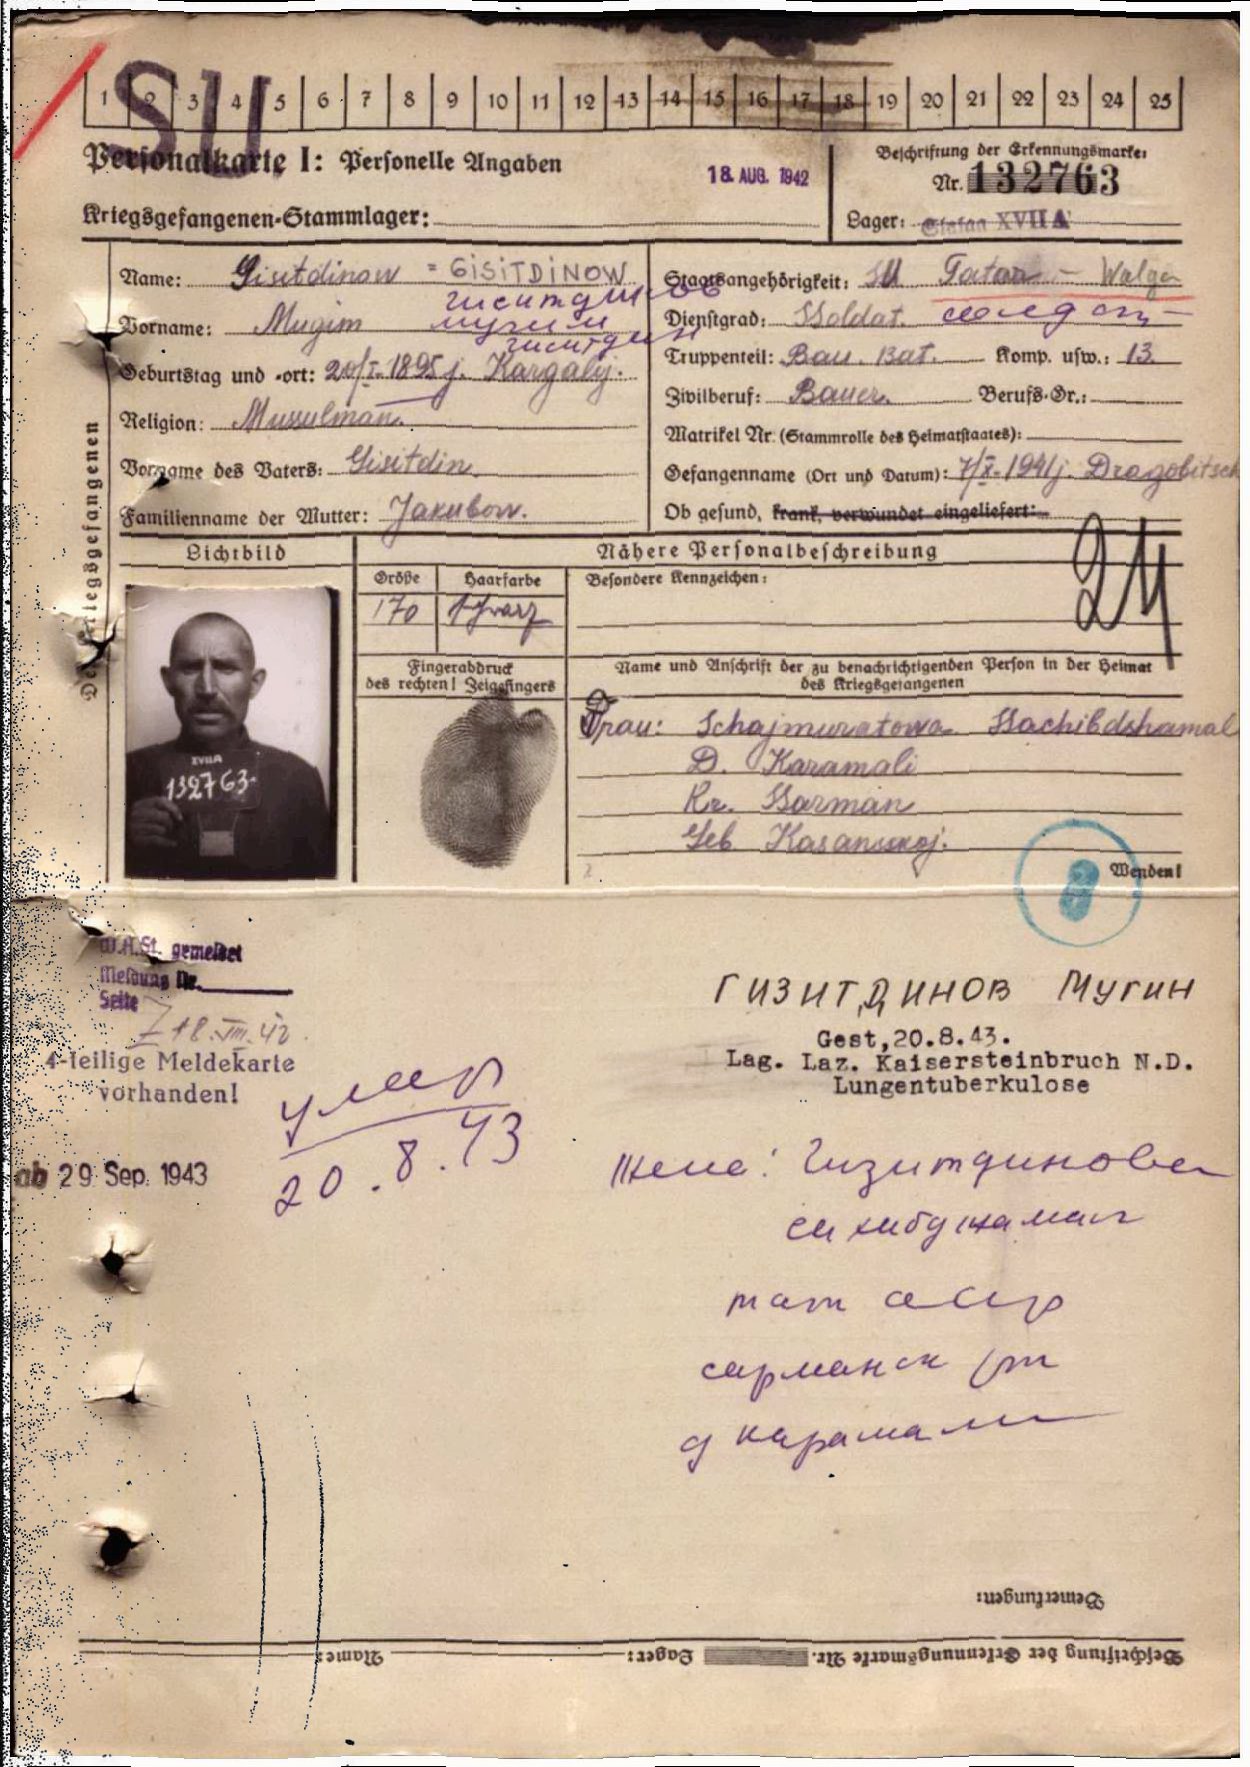 SU
1 2 3 4 5 6 7 8 9 10 11 12 13 14 15 16 17 18 19 20 21 22 23 24 25
Personalkarte I: Personelle Angaben
18. AUG. 1942
Beschriftung der Erkennungsmarke:
Nr. 132763
Kriegsgefangenen-Stammlager:
Lager: Stalag XVII A
Des Kriegsgefangenen
Name: Gisitdinow = GISITDINOW
гиситдинов
Vorname: Mugim мугим
гиситдин
Geburtstag und -ort: 20/I. 1895 j. Kargalij.
Religion: Musulman.
Vorname des Vaters: Gisitdin
Familienname der Mutter: Jakubow.
Staatsangehörigkeit: SU Tatar - Wolga
Dienstgrad: Soldat. солдат
Truppenteil: Bau. Bat. Komp. usw.: 13.
Zivilberuf: Bauer. Berufs-Gr.:
Matrikel Nr. (Stammrolle des Heimatstaates):
Gefangenname (Ort und Datum): 7/X. 1941 j. Dragobitsch
Ob gesund, krank, verwundet eingeliefert:
Lichtbild
XVIIA
132763
Nähere Personalbeschreibung
Größe Haarfarbe Besondere Kennzeichen:
170 schwarz
Fingerabdruck
des rechten! Zeigefingers
Name und Anschrift der zu benachrichtigenden Person in der Heimat
des Kriegsgefangenen
Frau: Schajmuratowa Sachibdshamal
D. Karamali
Kr. Sarman
Geb Kasanskoj.
Wenden!
W.A.St. gemeldet
Meldung Nr.
Seite
18. VIII. 42
4-teilige Meldekarte
vorhanden!
умер
20.8.43
ab 29. Sep. 1943
ГИЗИТДИНОВ МУГИН
Gest, 20.8.43.
Lag. Laz. Kaisersteinbruch N.D.
Lungentuberkulose
Жена: Гизитдинова
сахибджамал
тат ссср
сарманск рн
д карамали
Bemerkungen:
Beschriftung der Erkennungsmarke Nr. Lager: Name: